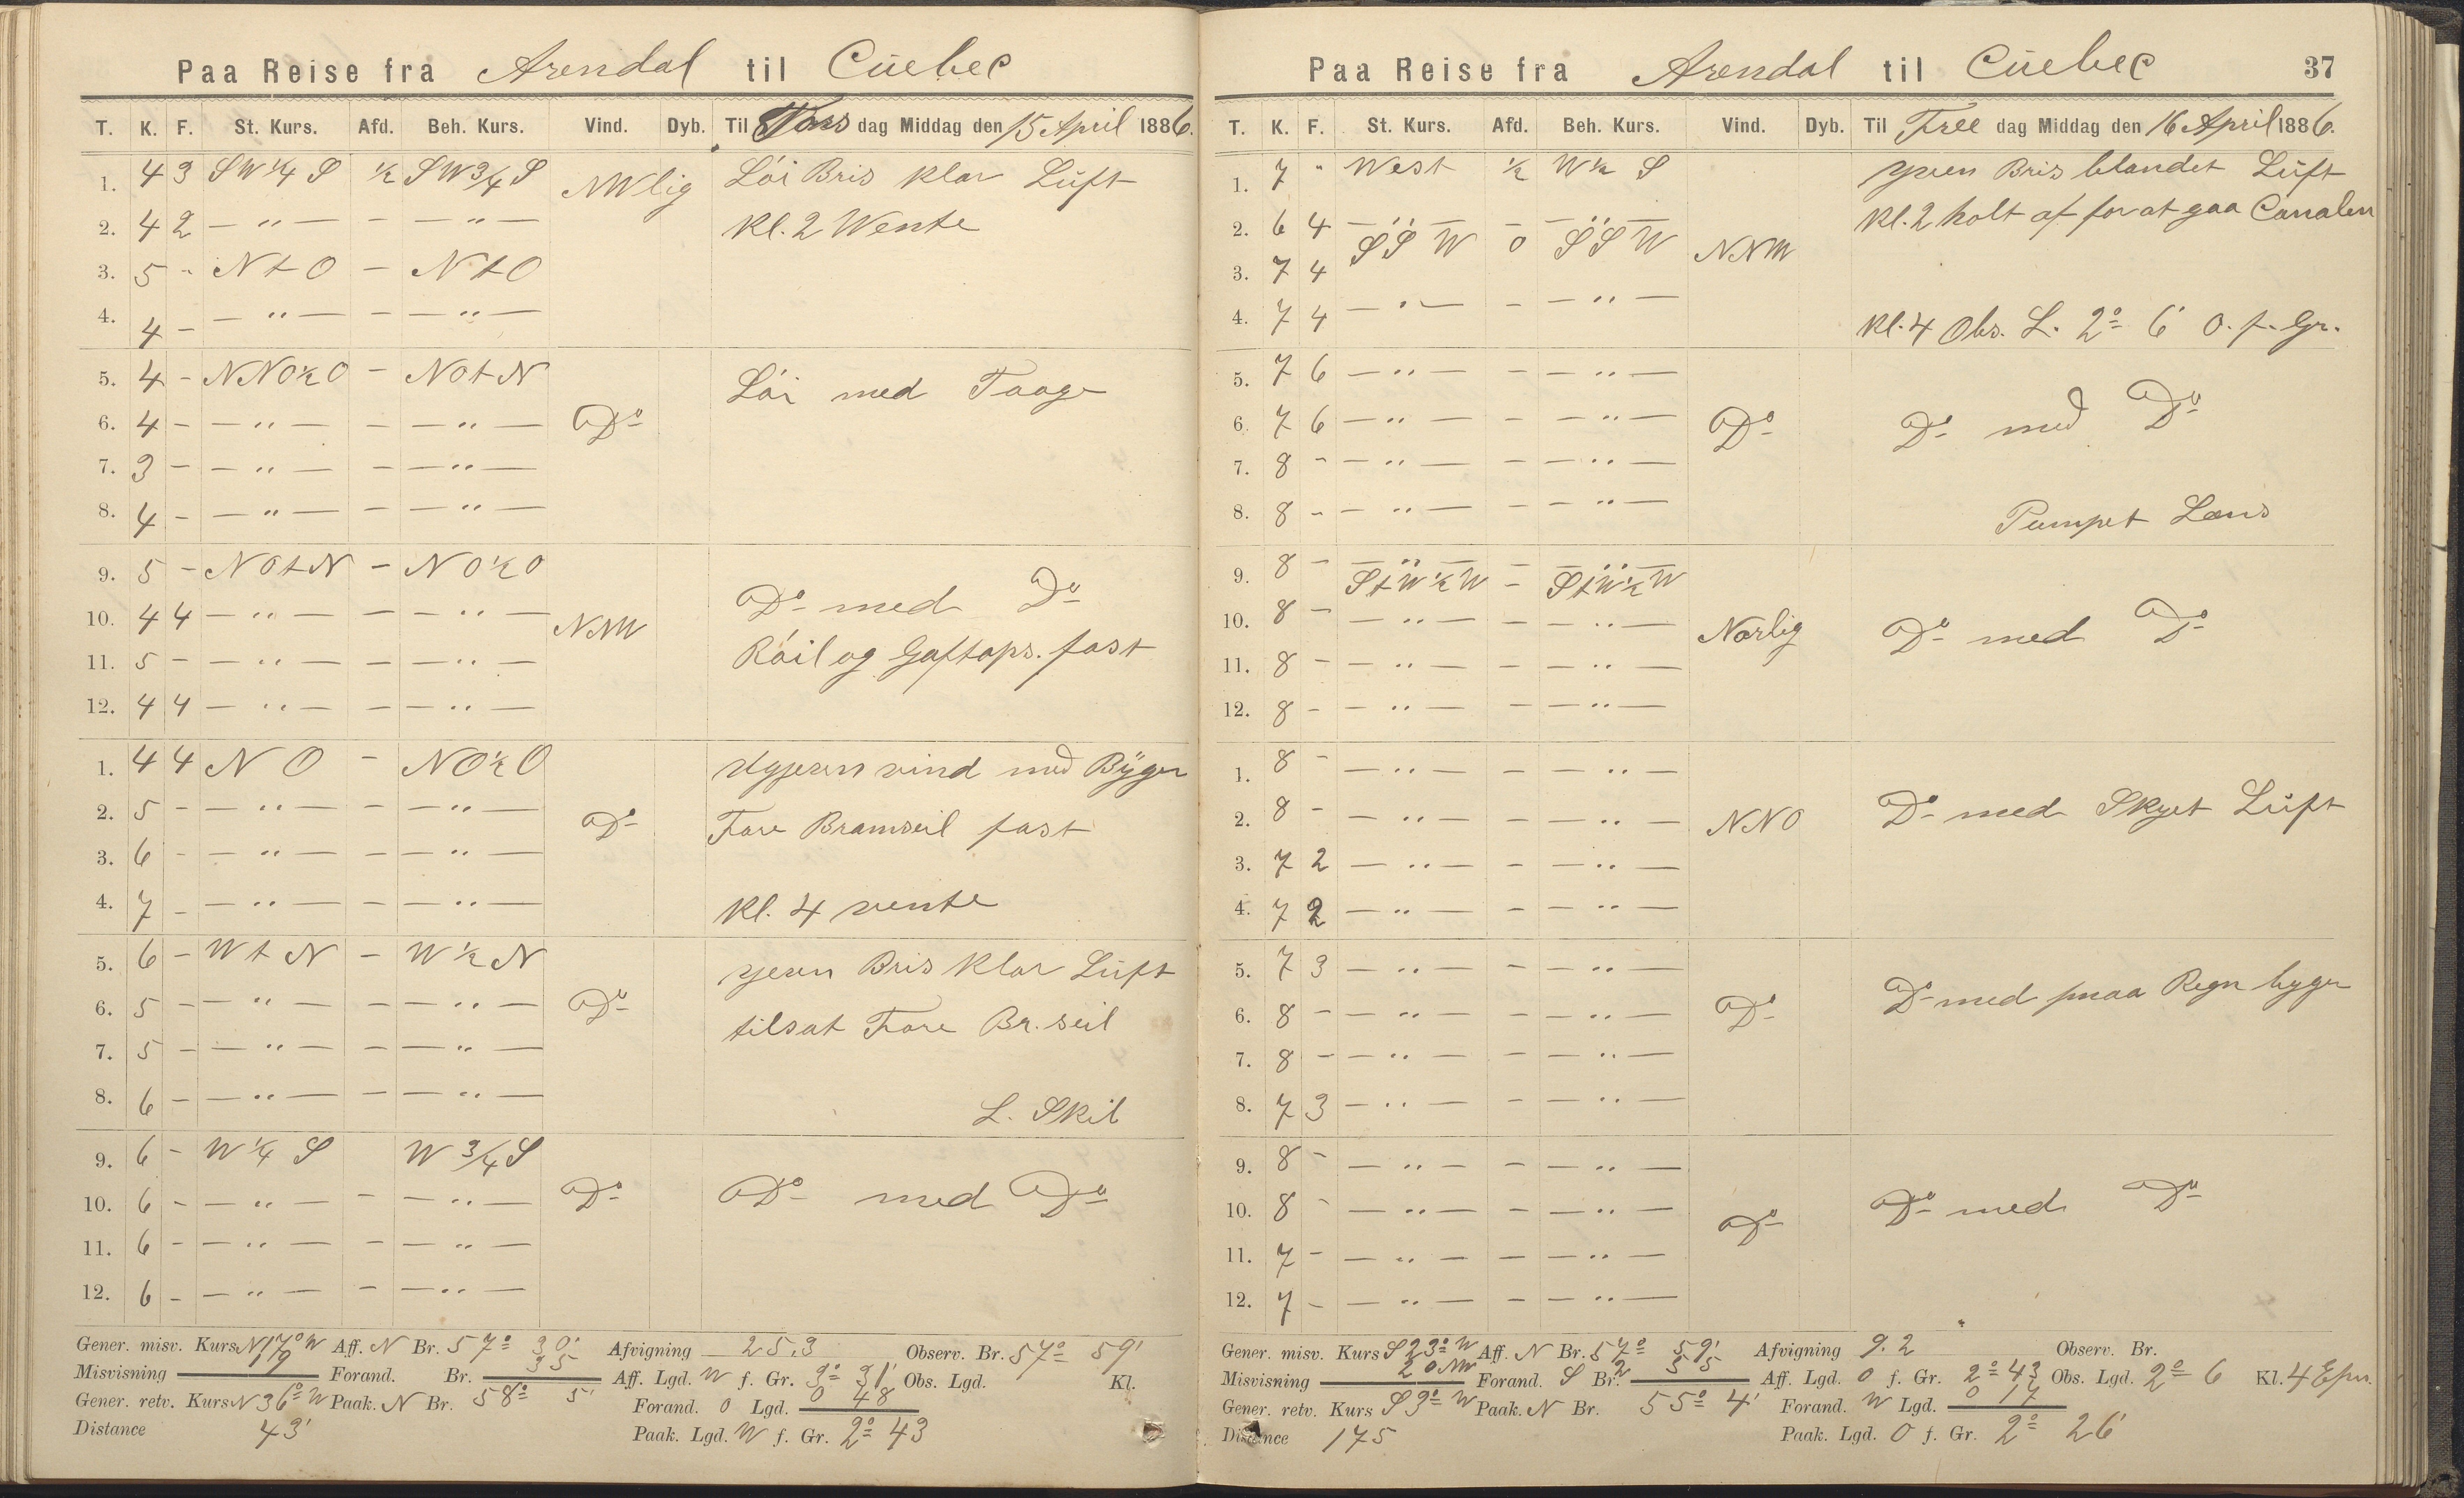 Paa Reise fra Arendal til Cuebec
T. K. F. St. Kurs. Afd. Beh. Kurs. Vind. Dyb. Til Tors dag Middag den 15 April 1886.
1. 4 3 SW 1/4 S 1/2 SW 3/4 S NWlig Löi Bris klar Luft
2. 4 2 — " — - — " — Kl. 2 Wente
3. 5 - N t O - N t O
4. 4 - — " — - — " —
5. 4 - NNO 1/2 O - NO t N Löi med Taage
6. 4 - — " — - — " — Do
7. 3 - — " — - — " —
8. 4 - — " — - — " —
9. 5 - NO t N - NO 1/2 O Do med Do
10. 4 4 — " — - — " — NNW
11. 5 - — " — - — " — Röil og Gaftops. fast
12. 4 4 — " — - — " —
1. 4 4 NO - NO 1/2 O vind med Byger
2. 5 - — " — - — " — Do Fore Bramseil fast
3. 6 - — " — - — " —
4. 7 - — " — - — " — Kl. 4 vente
5. 6 - W t N - W 1/2 N jevn Bris klar Luft
6. 5 - — " — - — " — Do tilsat Fore Br. seil
7. 5 - — " — - — " —
8. 6 - — " — - — " — L. Skil
9. 6 - W 1/4 S W 3/4 S
10. 6 - — " — - — " — Do Do med Do
11. 6 - — " — - — " —
12. 6 - — " — - — " —
Gener. misv. Kurs N 17° W Aff. N Br. 57° 30' Afvigning 25,3 Observ. Br. 57° 59'
Misvisning 19 Forand. Br. 35 Aff. Lgd. W f. Gr. 3° 31' Obs. Lgd. Kl.
Gener. retv. Kurs N 36° W Paak. N Br. 58° 5' Forand. O Lgd. 0 48
Distance 43' Paak. Lgd. W f. Gr. 2° 43
Paa Reise fra Arendal til Cuebec 37
T. K. F. St. Kurs. Afd. Beh. Kurs. Vind. Dyb. Til Free dag Middag den 16 April 1886.
1. 7 " West 1/2 W 1/2 S jevn Bris blandet Luft
2. 6 4 — " — - — " — Kl. 2 holt af for at gaa Canalen
3. 7 4 SSW 0 SSW NNW
4. 7 4 — " — - — " — Kl. 4 Obs. L. 2° 6' O. f. Gr.
5. 7 6 — " — - — " —
6. 7 6 — " — - — " — Do Do med Do
7. 8 - — " — - — " —
8. 8 - — " — - — " — Pumpet Læns
9. 8 - — " — - — " —
S t W 1/2 W - S t W 1/2 W
10. 8 - — " — - — " — Norlig Do med Do
11. 8 - — " — - — " —
12. 8 - — " — - — " —
1. 8 - — " — - — " —
2. 8 - — " — - — " — NNO Do med Skyet Luft
3. 7 2 — " — - — " —
4. 7 2 — " — - — " —
5. 7 3 — " — - — " — Do med smaa Regn byger
6. 8 - — " — - — " — Do
7. 8 - — " — - — " —
8. 7 3 — " — - — " —
9. 8 - — " — - — " —
10. 8 - — " — - — " — Do Do med Do
11. 7 - — " — - — " —
12. 7 - — " — - — " —
Gener. misv. Kurs S 23° W Aff. N Br. 57° 59' Afvigning 9.2 Observ. Br.
Misvisning 20 NW Forand. S Br. 2 55 Aff. Lgd. O f. Gr. 2° 43 Obs. Lgd. 2° 6 Kl. 4 Epm.
Gener. retv. Kurs S 3° W Paak. N Br. 55° 4' Forand. W Lgd. 0 17
Distance 175 Paak. Lgd. O f. Gr. 2° 26'